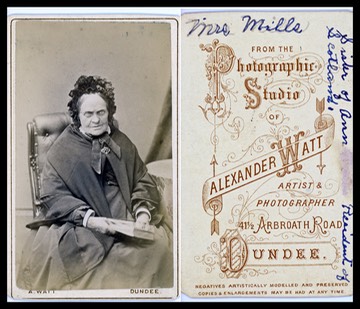 A. WATT. DUNDEE.
Mrs Mills
FROM THE
Photographic
Studio
OF
ALEXANDER WATT
ARTIST &
PHOTOGRAPHER
41½ ARBROATH ROAD
DUNDEE.
NEGATIVES ARTISTICALLY MODELLED AND PRESERVED
COPIES & ENLARGEMENTS MAY BE HAD AT ANY TIME.
Sister of Ann
Resident of
Scotland